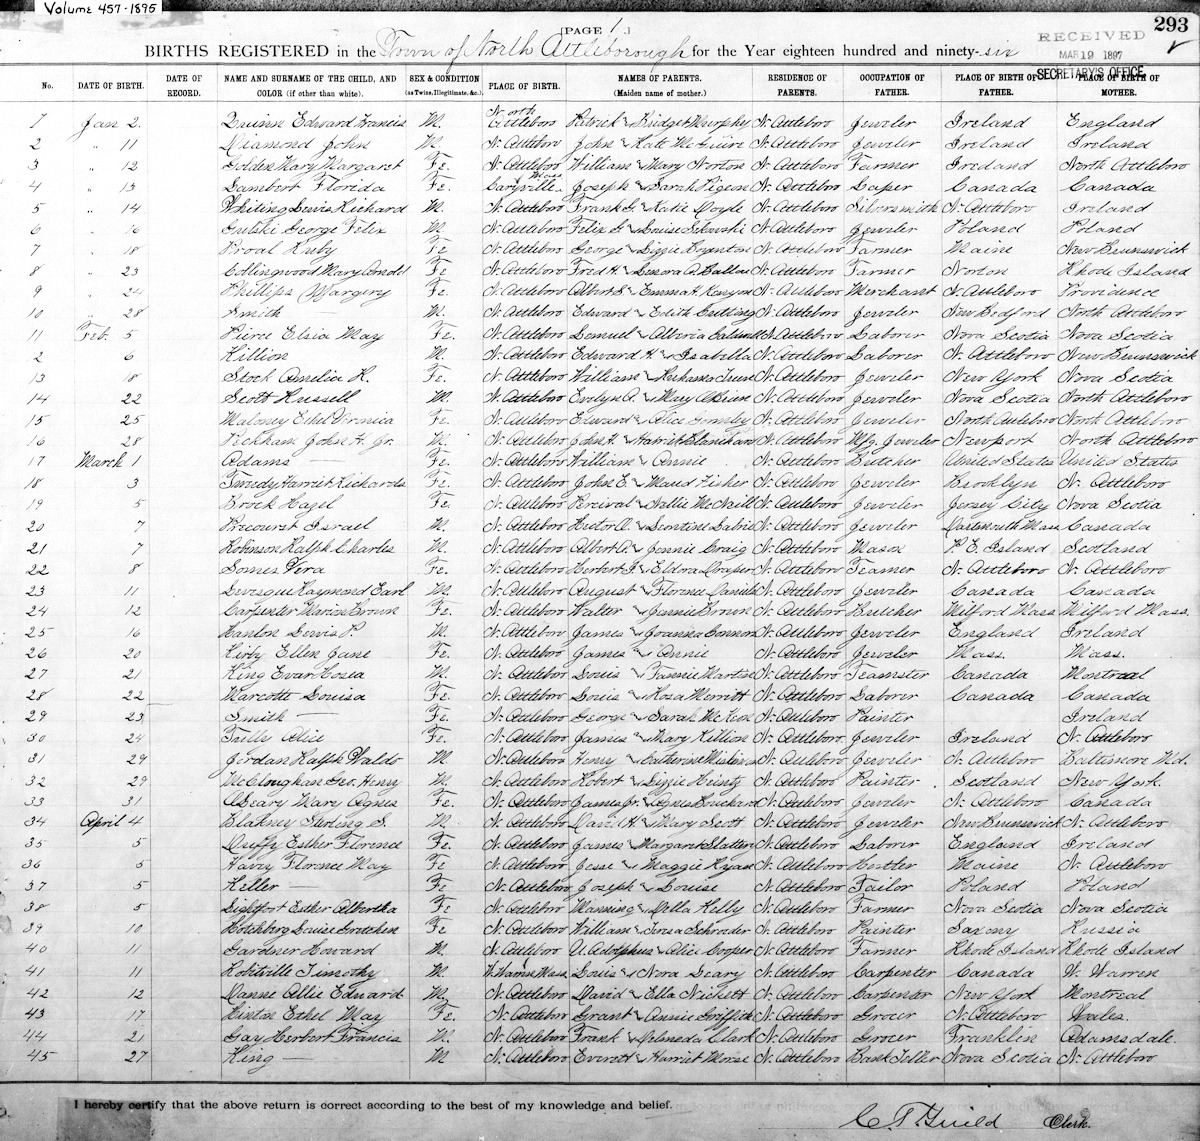 Volume 457-1895
[PAGE 1.]
293
BIRTHS REGISTERED in the Town of North Attleborough for the Year eighteen hundred and ninety-six
RECEIVED
MAR 19 1897
SECRETARY'S OFFICE
No. DATE OF BIRTH. DATE OF RECORD. NAME AND SURNAME OF THE CHILD, AND COLOR (if other than white). SEX & CONDITION (as Twins, Illegitimate, &c.) PLACE OF BIRTH. NAMES OF PARENTS. (Maiden name of mother.) RESIDENCE OF PARENTS. OCCUPATION OF FATHER. PLACE OF BIRTH OF FATHER. PLACE OF BIRTH OF MOTHER.
1 Jan 2. Quinn Edward Francis M. North Attleboro Patrick Bridget Murphy N. Attleboro Jeweler Ireland England
2 " 11 Diamond John M. N. Attleboro John Kate McGuire N. Attleboro Jeweler Ireland Ireland
3 " 12 Golden Mary Margaret Fe. N. Attleboro William Mary Norton N. Attleboro Farmer Ireland North Attleboro
4 " 13 Lambert Florida Fe. Caryville Mass Joseph Sarah Pigeon N. Attleboro Canada Canada
5 " 14 Whiting Lewis Richard M. N. Attleboro Frank G. Katie Doyle N. Attleboro Silversmith N. Attleboro Ireland
6 " 16 George Felix M. N. Attleboro Felix Louise N. Attleboro Jeweler Poland Poland
7 " 18 Proal Ruby Fe N. Attleboro George Lizzie Boynton N. Attleboro Farmer Maine New Brunswick
8 " 23 Collingwood Mary Arnold Fe N. Attleboro Fred H. Lenora A. Ballou N. Attleboro Farmer Norton Rhode Island
9 " 24 Phillips Margery Fe. N. Attleboro Albert S. Emma H. Kenyon N. Attleboro Merchant N. Attleboro Providence
10 " 28 Smith — M. N. Attleboro Edward Edith N. Attleboro Jeweler New Bedford North Attleboro
11 Feb. 5 Pierce Elsia May Fe. N. Attleboro Lemuel Alberia N. Attleboro Laborer Nova Scotia Nova Scotia
2 6 Killion M. N. Attleboro Edward H. Isabella N. Attleboro Laborer N. Attleboro New Brunswick
13 18 Stock Amelia R. Fe. N. Attleboro William N. Attleboro Jeweler New York Nova Scotia
14 22 Scott Russell M. N. Attleboro Evelyn A. Mary O'Brien N. Attleboro Jeweler Nova Scotia North Attleboro
15 25 Maloney Ethel Veronica Fe. N. Attleboro Edward Alice Gormley N. Attleboro Jeweler North Attleboro North Attleboro
16 28 Peckham John H. Jr. M. N. Attleboro John H. Harriet N. Attleboro Mfg. Jeweler Newport North Attleboro
17 March 1 Adams — Fe. N. Attleboro William Annie N. Attleboro Butcher United States United States
18 3 Tweedy Harriet Richards Fe. N. Attleboro John E. Maud Fisher N. Attleboro Jeweler Brooklyn N. Attleboro
19 5 Brock Hazel Fe. N. Attleboro Percival Nellie McNeill N. Attleboro Jeweler Jersey City Nova Scotia
20 7 Precourt Israel M. N. Attleboro Hector A. Leontine N. Attleboro Jeweler Dartmouth Mass Canada
21 7 Robinson Ralph Charles M. N. Attleboro Albert A. Jennie Craig N. Attleboro Mason P. E. Island Scotland
22 8 Somes Vera Fe. N. Attleboro Herbert J. Eldora Draper N. Attleboro Teamer N. Attleboro N. Attleboro
23 11 Levesque Raymond Earl M. N. Attleboro August Florence N. Attleboro Jeweler Canada Canada
24 12 Carpenter Marion Brown Fe. N. Attleboro Walter Jennie Brown N. Attleboro Butcher Milford Mass Milford Mass.
25 16 Hanlon Lewis P. M. N. Attleboro James Joanna Connor N. Attleboro Jeweler England Ireland
26 20 Kirby Ellen Jane Fe. N. Attleboro James Annie N. Attleboro Jeweler Mass. Mass.
27 21 King Evar Hosea M. N. Attleboro Louis Fannie Martin N. Attleboro Teamster Canada Montreal
28 22 Marcotte Louisa Fe. N. Attleboro Louis Rosa Merritt N. Attleboro Laborer Canada Canada
29 23 Smith — Fe. N. Attleboro George Sarah McKeon N. Attleboro Painter Ireland
30 24 Tully Alice Fe. N. Attleboro James Mary Killion N. Attleboro Jeweler Ireland N. Attleboro
31 29 Jordan Ralph Waldo M N. Attleboro Henry Catherine N. Attleboro Jeweler N. Attleboro Baltimore Md.
32 29 McCloughan Geo. Henry M N. Attleboro Robert Lizzie Heintz N. Attleboro Painter Scotland New York.
33 31 O'Leary Mary Agnes Fe. N. Attleboro James Jr. Agnes N. Attleboro Jeweler N. Attleboro Canada
34 April 4 Blakney Sterling S. M. N. Attleboro David H. Mary Scott N. Attleboro Jeweler New Brunswick N. Attleboro
35 5 Duffy Esther Florence Fe. N. Attleboro James Margaret Slattery N. Attleboro Laborer England Ireland
36 5 Florence May Fe N. Attleboro Jesse Maggie Ryan N. Attleboro Maine N. Attleboro
37 5 Heller — Fe N. Attleboro Joseph Louise N. Attleboro Tailor Poland Poland
38 5 Lightfoot Esther Albertha Fe N. Attleboro Manning Della Kelly N. Attleboro Farmer Nova Scotia Nova Scotia
39 10 Hotchberg Louise Gretchen Fe N. Attleboro William Teresa Schroder N. Attleboro Painter Saxony Russia
40 11 Gardner Howard M. N. Attleboro U. Adolphus Alice Cooper N. Attleboro Farmer Rhode Island Rhode Island
41 11 Robitville Timothy M W. Warren Mass. Louis Nora Leary N. Attleboro Carpenter Canada W. Warren
42 12 Danne Allie Edward M. N. Attleboro David Ella Nickett N. Attleboro Carpenter New York Montreal
43 17 Hinton Ethel May Fe. N. Attleboro Grant Annie Griffith N. Attleboro Grocer N. Attleboro Wales.
44 21 Gay Herbert Francis M. N. Attleboro Frank Almeda Clark N. Attleboro Grocer Franklin Adamsdale.
45 27 King — M N. Attleboro Everett Harriet Morse N. Attleboro Bank Teller Nova Scotia N. Attleboro
I hereby certify that the above return is correct according to the best of my knowledge and belief.
C. T. Guild Clerk.